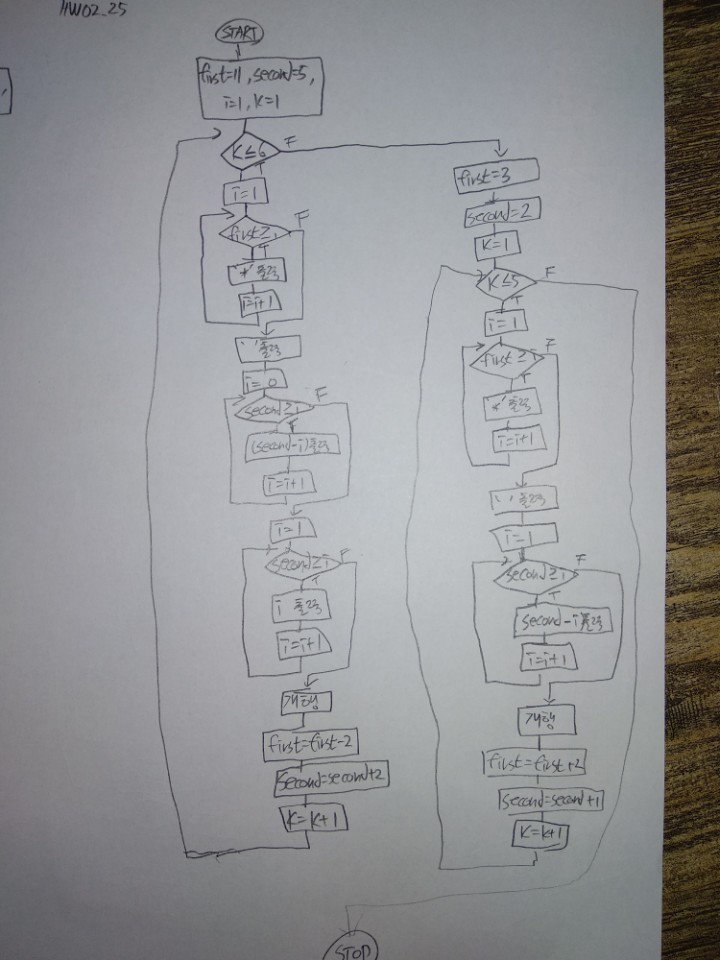 HW02_25
START
first=11, second=5,
i=1, k=1
K≤6
F
T
i=1
first≥i
F
T
'*' 출력
i=i+1
' ' 출력
i=0
second≥i
F
(second-i)출력
i=i+1
i=1
second≥i
F
T
i 출력
i=i+1
개행
first=first-2
second=second+2
K=K+1
first=3
second=2
K=1
K≤5
F
T
i=1
first≥i
F
T
'*' 출력
i=i+1
' ' 출력
i=1
second≥i
F
T
second-i출력
i=i+1
개행
first=first+2
second=second+1
K=K+1
STOP